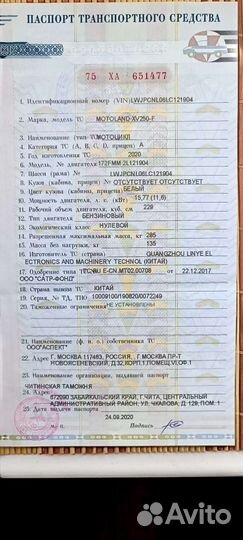 ПАСПОРТ ТРАНСПОРТНОГО СРЕДСТВА
75 ХА 651477
1. Идентификационный номер (VIN) LWJPCNL06LC121904
2. Марка, модель ТС MOTOLAND-XV250-F
3. Наименование (тип ТС) МОТОЦИКЛ
4. Категория ТС (А, В, С, D, прицеп) А
5. Год изготовления ТС 2020
6. Модель, № двигателя 172FMM 2L121904
7. Шасси (рама) № LWJPCNL06LC121904
8. Кузов (кабина, прицеп) № ОТСУТСТВУЕТ ОТСУТСТВУЕТ
9. Цвет кузова (кабины, прицепа) БЕЛЫЙ
10. Мощность двигателя, л. с. (кВт) 15,77 (11,6)
11. Рабочий объем двигателя, куб. см 229
12. Тип двигателя БЕНЗИНОВЫЙ
13. Экологический класс НУЛЕВОЙ
14. Разрешенная максимальная масса, кг 285
15. Масса без нагрузки, кг 135
16. Изготовитель ТС (страна) GUANGZHOU LINYE EL
ECTRONICS AND MACHINERY TECHNOL (КИТАЙ)
17. Одобрение типа ТС № E-CN.MT02.00708 от 22.12.2017
ООО "САТР-ФОНД"
18. Страна вывоза ТС КИТАЙ
19. Серия, № ТД, ТПО 10009100/190820/0072249
20. Таможенные ограничения НЕ УСТАНОВЛЕНЫ
21. Наименование (ф. и. о.) собственника ТС
ООО"АСПЕКТ"
22. Адрес Г. МОСКВА 117463, РОССИЯ, Г МОСКВА ПР-Т
НОВОЯСЕНЕВСКИЙ, Д.32, КОРП.1, ПОМЕЩ.VI,ОФ.1
23. Наименование организации, выдавшей паспорт
ЧИТИНСКАЯ ТАМОЖНЯ
24. Адрес 672090 ЗАБАЙКАЛЬСКИЙ КРАЙ, Г ЧИТА, ЦЕНТРАЛЬНЫЙ
АДМИНИСТРАТИВНЫЙ РАЙОН, УЛ. ЧКАЛОВА, Д. 129, ПОМ. 1
25. Дата выдачи паспорта
24.09.2020
М. п. Подпись
Avito